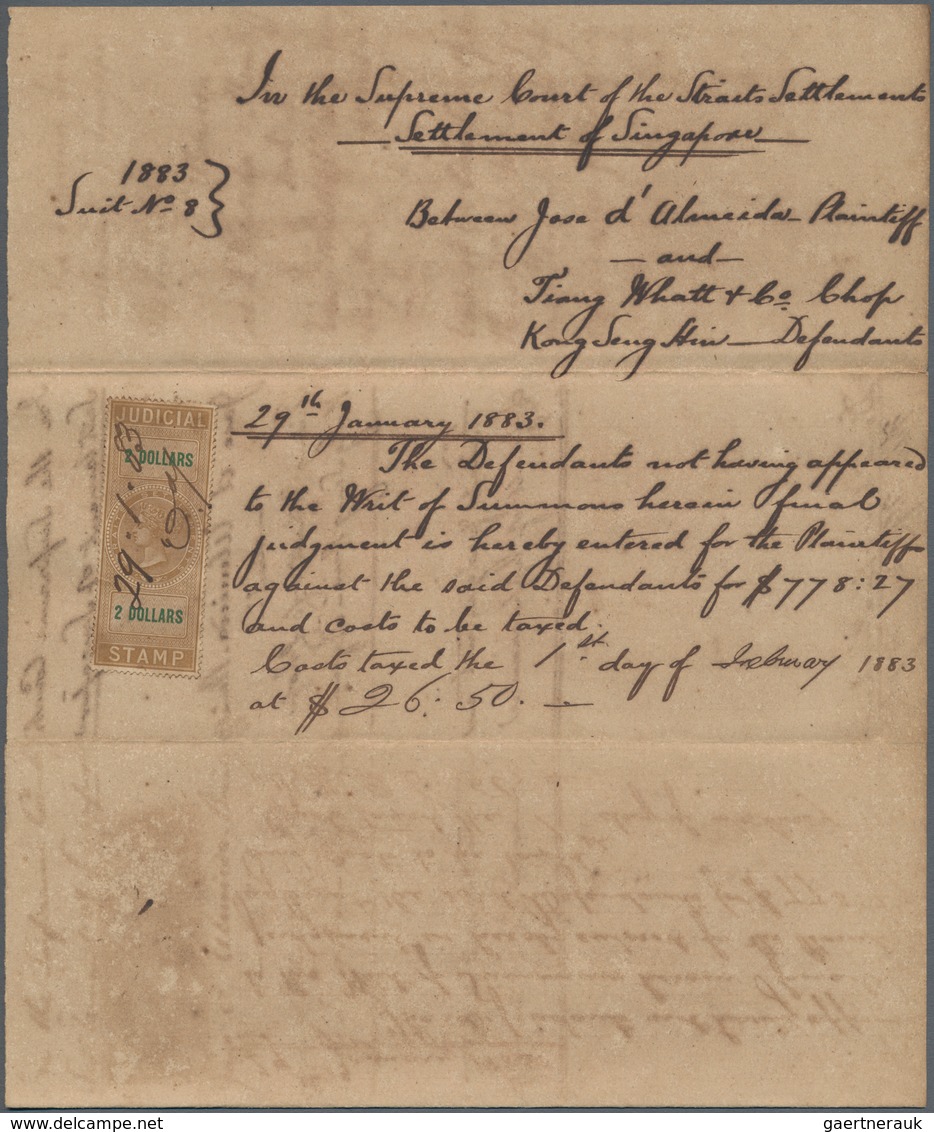 In the Supreme Court of the Straits Settlements
Settlement of Singapore
1883
Suit No. 8
Between Jose d'Almeida Plaintiff
— and —
Tiang Whatt & Co. Chop
Kong Seng Hin — Defendants
29th January 1883.
The Defendants not having appeared
to the Writ of Summons herein final
judgment is hereby entered for the Plaintiff
against the said Defendants for $778:27
and costs to be taxed.
Costs taxed the 1st. day of February 1883
at $26.50. —
JUDICIAL
2 DOLLARS
29.1.83
2 DOLLARS
STAMP
DELCAMPE.NET
gaertnerauk